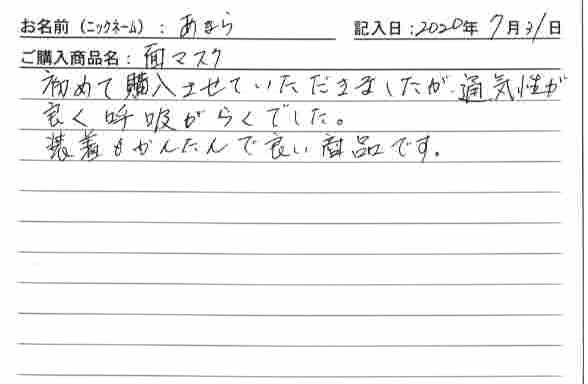 お名前（ニックネーム）：あきら 記入日：2020年 7月31日
ご購入商品名：面マスク
初めて購入させていただきましたが、通気性が
良く呼吸がらくでした。
装着もかんたんで良い商品です。